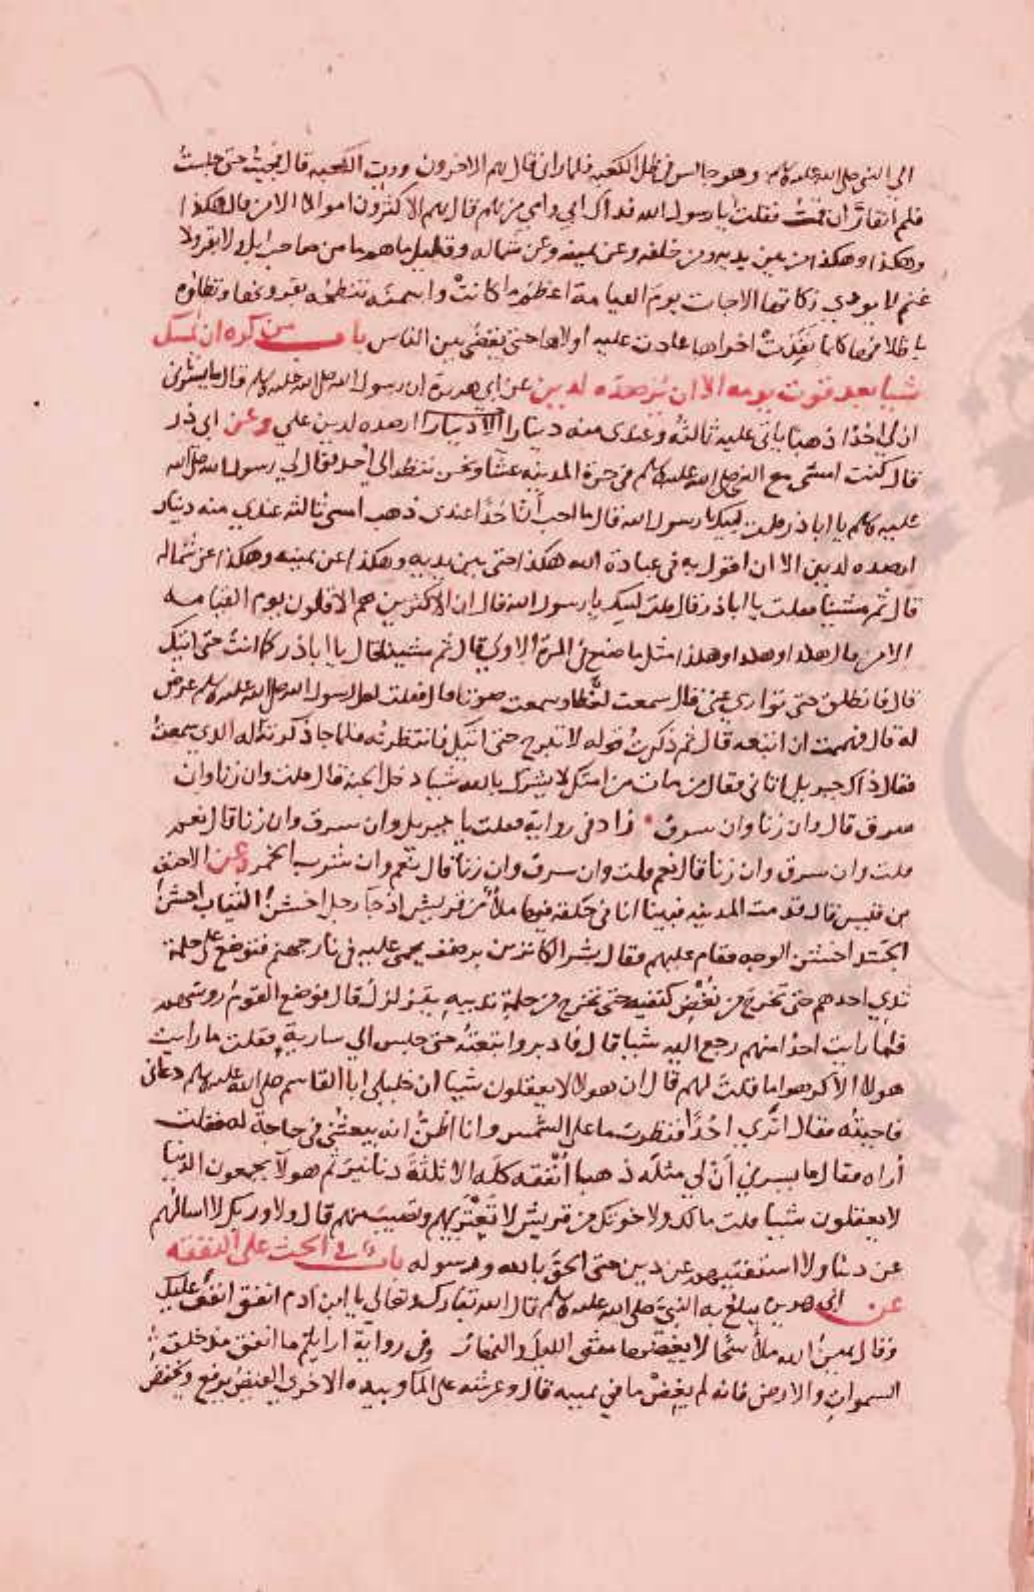 الي النبي صلى الله عليه وسلم وهو جالس في ظل الكعبه فلما راني قال هم الاخرون ورب الكعبه قال فجيت حتى جلست
فلم اتقارّ ان قمت فقلت يا رسول الله فداك ابي وامي من هم قال هم الاكثرون اموالا الا من قال هكذا
وهكذا وهكذا من بين يديه ومن خلفه وعن يمينه وعن شماله وقليل ما هم ما من صاحب ابل ولا بقر ولا
غنم لا يودي زكاتها الا جات يوم القيامة اعظم ما كانت واسمنه تنطحه بقرونها وتطاوه
باظلافها كلما نفدت اخراها عادت عليه اولاها حتى يقضى بين الناس باب من كره ان يمسك
شيا بعد قوت يومه الا ان يرصده لدين عن ابي هريرة ان رسول الله صلى الله عليه وسلم قال ما يسرني
ان لي احدا ذهبا ياتي عليه ثالثة وعندي منه دينار الا دينارا ارصده لدين علي وعن ابي ذر
قال كنت امشي مع النبي صلى الله عليه وسلم في حرة المدينه عشا ونحن ننظر الى احد فقال لي رسول الله صلى الله
عليه وسلم يا اباذر قلت لبيك يا رسول الله قال ما احب ان احدا عندي ذهب امسي ثالثه عندي منه دينار
ارصده لدين الا ان اقول به في عبادة الله هكذا حتى بين يديه وهكذا عن يمينه وهكذا عن شماله
قال ثم مشينا فقلت يا اباذر قال قلت لبيك يا رسول الله قال ان الاكثرين هم الاقلون يوم القيامه
الا من قال هكذا وهكذا وهكذا مثل ما صنع في المرة الاولي قال ثم مشينا قال يا اباذر كما انت حتى اتيك
قال فانطلق حتى تواري عني قال سمعت لغطا وسمعت صوتا قال فقلت لعل رسول الله صلى الله عليه وسلم عرض
له قال فهممت ان اتبعه قال ثم ذكرت قوله لا تبرح حتى اتيك فانتظرته فلما جا ذكرت له الذي سمعت
فقال ذاك جبريل اتاني فقال من مات من امتك لا يشرك بالله شيا دخل الجنة قال قلت وان زنا وان
سرق قال وان زنا وان سرق زاد في رواية فقلت يا جبريل وان سرق وان زنا قال نعم
قلت وان سرق وان زنا قال نعم قلت وان سرق وان زنا قال نعم وان شرب الخمر وعن الاحنف
بن قيس قال قدمت المدينه فبينا انا في حلقه فيها ملأ من قريش اذ جا رجل اخشن الثياب اخشن
الجسد اخشن الوجه فقام عليهم فقال بشر الكانزين برضف يحمى عليه في نار جهنم فتوضع على حلمة
ثدي احدهم حتى تخرج من نغض كتفيه حتى تخرج من حلمة ثدييه يتزلزل قال فوضع القوم روسهم
فما رايت احدا منهم رجع اليه شيا قال فادبر واتبعته حتى جلس الي سارية فقلت ما رايت
هولا الا كرهوا ما قلت لهم قال ان هولا لا يعقلون شيا ان خليلي ابا القاسم صلى الله عليه وسلم دعاني
فاجبته فقال اتري احدا فنظرت ما علي الشمس وانا اظن انه يبعثني في حاجة له فقلت
أراه فقال ما يسرني ان لي مثله ذهبا أنفقه كله الا ثلثة دنانير ثم هولا يجمعون الدنيا
لا يعقلون شيا قلت مالك ولاخوتك من قريش لا تعتريهم وتصيب منهم قال ولا وربك لا اسالهم
عن دنيا ولا استفتيهم عن دين حتى الحق بالله ورسوله باب في الحث على النفقه
عن ابي هريرة يبلغ به النبي صلى الله عليه وسلم قال الله تبارك وتعالي يا ابن ادم انفق انفق عليك
وقال يمين الله ملأ سحا لا يغيضها نفقه الليل والنهار وفي رواية ارايتم ما انفق مذ خلق
السموات والارض فانه لم يغض ما في يمينه قال وعرشه على الما وبيده الاخري القبض يرفع ويخفض